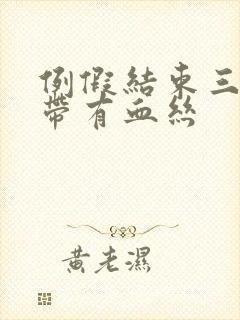 例假結束三
帶有血絲
黃老濕